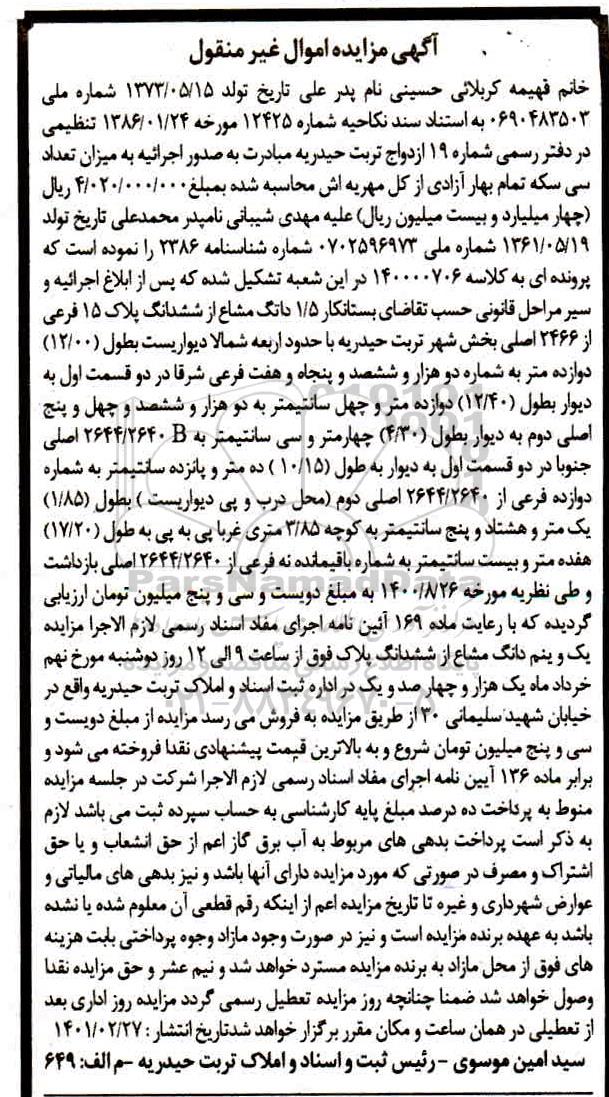 آگهی مزایده اموال غیر منقول
خانم فهیمه کربلائی حسینی نام پدر علی تاریخ تولد ۱۳۷۳/۰۵/۱۵ شماره ملی
۰۶۹۰۴۸۳۵۰۳ به استناد سند نکاحیه شماره ۱۲۴۲۵ مورخه ۱۳۸۶/۰۱/۲۴ تنظیمی
در دفتر رسمی شماره ۱۹ ازدواج تربت حیدریه مبادرت به صدور اجرائیه به میزان تعداد
سی سکه تمام بهار آزادی از کل مهریه اش محاسبه شده بمبلغ ۴/۰۲۰/۰۰۰/۰۰۰ ریال
(چهار میلیارد و بیست میلیون ریال) علیه مهدی شیبانی نامپدر محمدعلی تاریخ تولد
۱۳۶۱/۰۵/۱۹ شماره ملی ۰۷۰۲۵۹۶۹۷۳ شماره شناسنامه ۲۳۸۶ را نموده است که
پرونده ای به کلاسه ۱۴۰۰۰۰۷۰۶ در این شعبه تشکیل شده که پس از ابلاغ اجرائیه و
سیر مراحل قانونی حسب تقاضای بستانکار ۱/۵ دانگ مشاع از ششدانگ پلاک ۱۵ فرعی
از ۲۴۶۶ اصلی بخش شهر تربت حیدریه با حدود اربعه شمالا دیواریست بطول (۱۲/۰۰)
دوازده متر به شماره دو هزار و ششصد و پنجاه و هفت فرعی شرقا در دو قسمت اول به
دیوار بطول (۱۲/۴۰) دوازده متر و چهل سانتیمتر به دو هزار و ششصد و چهل و پنج
اصلی دوم به دیوار بطول (۴/۳۰) چهارمتر و سی سانتیمتر به B ۲۶۴۴/۲۶۴۰ اصلی
جنوبا در دو قسمت اول به دیوار به طول (۱۰/۱۵ ) ده متر و پانزده سانتیمتر به شماره
دوازده فرعی از ۲۶۴۴/۲۶۴۰ اصلی دوم (محل درب و پی دیواریست ) بطول (۱/۸۵)
یک متر و هشتاد و پنج سانتیمتر به کوچه ۳/۸۵ متری غربا پی به پی به طول (۱۷/۲۰)
هفده متر و بیست سانتیمتر به شماره باقیمانده نه فرعی از ۲۶۴۴/۲۶۴۰ اصلی بازداشت
و طی نظریه مورخه ۱۴۰۰/۸/۲۶ به مبلغ دویست و سی و پنج میلیون تومان ارزیابی
گردیده که با رعایت ماده ۱۶۹ آئین نامه اجرای مفاد اسناد رسمی لازم الاجرا مزایده
یک و ینم دانگ مشاع از ششدانگ پلاک فوق از ساعت ۹ الی ۱۲ روز دوشنبه مورخ نهم
خرداد ماه یک هزار و چهار صد و یک در اداره ثبت اسناد و املاک تربت حیدریه واقع در
خیابان شهید سلیمانی ۳۰ از طریق مزایده به فروش می رسد مزایده از مبلغ دویست و
سی و پنج میلیون تومان شروع و به بالاترین قیمت پیشنهادی نقدا فروخته می شود و
برابر ماده ۱۳۶ آیین نامه اجرای مفاد اسناد رسمی لازم الاجرا شرکت در جلسه مزایده
منوط به پرداخت ده درصد مبلغ پایه کارشناسی به حساب سپرده ثبت می باشد لازم
به ذکر است پرداخت بدهی های مربوط به آب برق گاز اعم از حق انشعاب و یا حق
اشتراک و مصرف در صورتی که مورد مزایده دارای آنها باشد و نیز بدهی های مالیاتی و
عوارض شهرداری و غیره تا تاریخ مزایده اعم از اینکه رقم قطعی آن معلوم شده یا نشده
باشد به عهده برنده مزایده است و نیز در صورت وجود مازاد وجوه پرداختی بابت هزینه
های فوق از محل مازاد به برنده مزایده مسترد خواهد شد و نیم عشر و حق مزایده نقدا
وصول خواهد شد ضمنا چنانچه روز مزایده تعطیل رسمی گردد مزایده روز اداری بعد
از تعطیلی در همان ساعت و مکان مقرر برگزار خواهد شدتاریخ انتشار : ۱۴۰۱/۰۲/۲۷
سید امین موسوی – رئیس ثبت و اسناد و املاک تربت حیدریه –م الف: ۶۴۹
ParsNamadData
۰۲۱-۸۸۳۴۹۶۷۰-۵